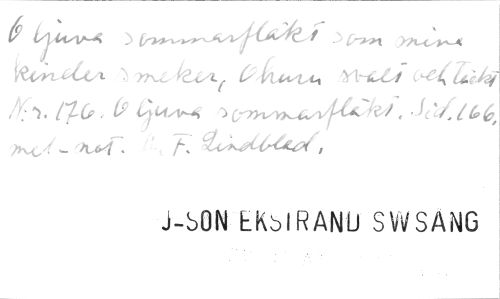 O ljuva sommarfläkt som mina
kinder smeker, O huru svalt och täckt
N:r. 176. O ljuva sommarfläkt. Sid. 166.
mel-not. F. Lindblad.
J-SON EKSTRAND SWSÅNG